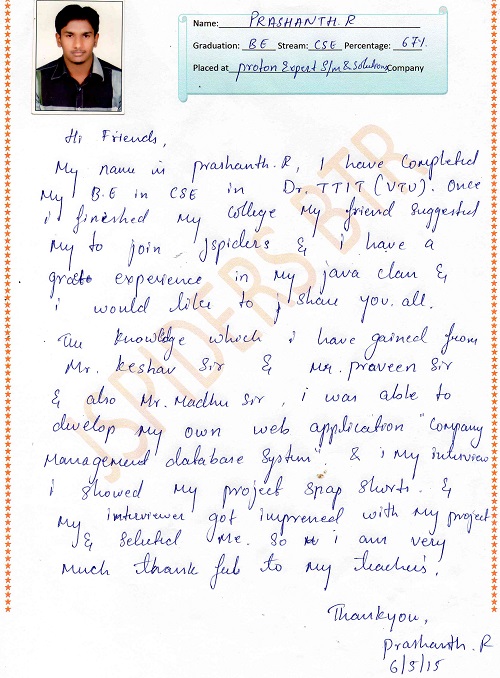 Name: PRASHANTH.R
Graduation: BE Stream: CSE Percentage: 67%
Placed at proton Expert S/m & Solutions Company
Hi Friends,
My name is prashanth.R, I have Completed
My B.E in CSE in Dr. TTIT (VTU). Once
i finished my college my friend suggested
my to join Jspiders & i have a
great experience in my java class &
i would like to share you all.
The knowledge which i have gained from
Mr. Keshav Sir & Mr. praveen Sir
& also Mr. Madhu Sir, i was able to
develop my own web application "Company
Management database System". & i my interview
i showed my project snap shorts. &
my interviewer got impressed with my project
& selected me. So i am very
much thankful to my teachers.
Thankyou,
prashanth.R
6/5/15
JSPIDERS BTR